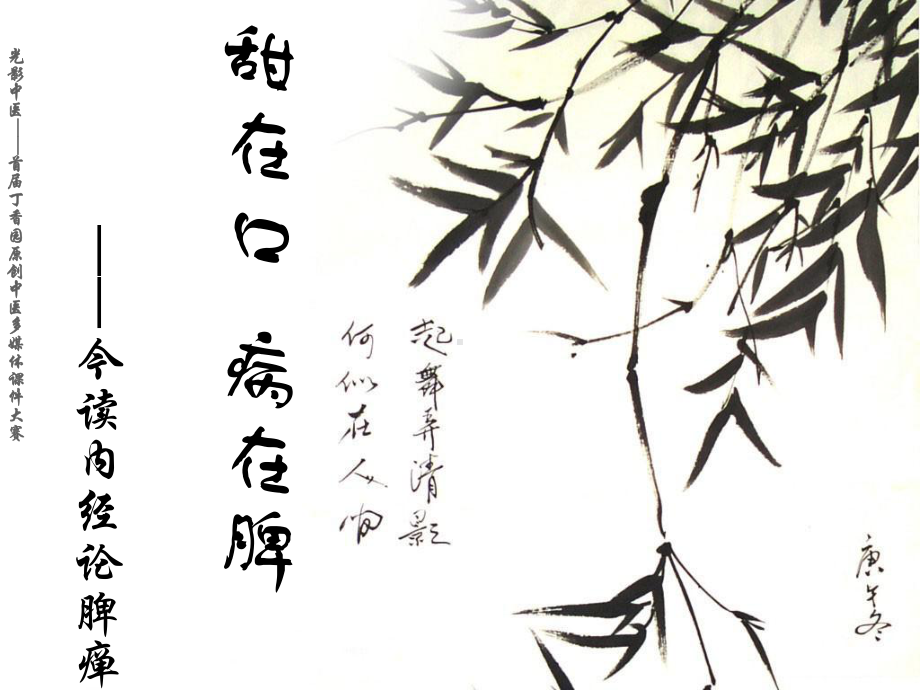 光影中医——首届丁香园原创中医多媒体课件大赛
甜在口 病在脾
——今读内经论脾瘅
起舞弄清影
何似在人间
庚午冬